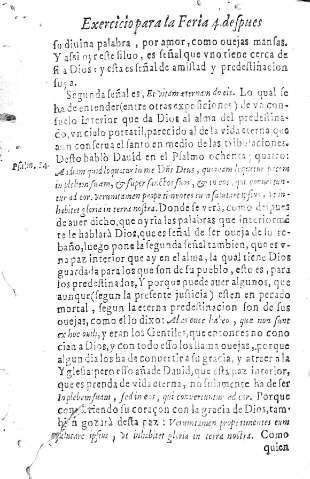 Exercicio para la Feria 4. despues
su diuina palabra, por amor, como ouejas mansas.
Y assi oyr este siluo, es señal que vno tiene cerca de
si a Dios: y esta es señal de amistad y predestinacion
suya.
Segunda señal es, Et vitam æternam do eis. Lo qual se
ha de entender (entre otras exposiciones) de vn con-
suelo interior que da Dios al alma del predestina-
do, vn cielo portatil, parecido al de la vida eterna que
aun conserua el santo en medio de las tribulaciones.
Desto habló Dauid en el Psalmo ochenta y quatro:
Psalm. 24.
Audiam quid loquatur in me Dñs Deus, quoniam loquetur pacem
in plebem suam, & super sanctos suos, & in eos, qui conuertun-
tur ad cor. verumtamen prope timentes eum salutare ipsius, vt in-
habitet gloria in terra nostra. Donde se verá, como despues
de auer dicho, que oyria las palabras que interiormē
te le hablará Dios, que es señal de ser oueja de su re-
baño, luego pone la segunda señal tambien, que es v-
na paz interior que ay en el alma, la qual tiene Dios
guardada para los que son de su pueblo, esto es, para
los predestinados, Y porque puede auer algunos, que
aunque (segun la presente justicia) esten en pecado
mortal, segun la eterna predestinacion son de sus
ouejas, como el lo dixo: Alias oues habeo, que non sunt
ex hoc ouili, y eran los Gentiles, que entonces no cono
cian a Dios, y con todo esso los llama ouejas, porque
algun dia los ha de conuertir a su gracia, y atraer a la
Yglesia: pero esso añade Dauid, que esta paz interior,
que es prenda de vida eterna, no solamente ha de ser
In plebem suam, sed in eos, qui conuertuntur ad cor. Porque
conuirtiendo su coraçon con la gracia de Dios, tam-
bien gozará desta paz: Verumtamen prope timentes eum
salutare ipsius, vt inhabitet gloria in terra nostra. Como
quien